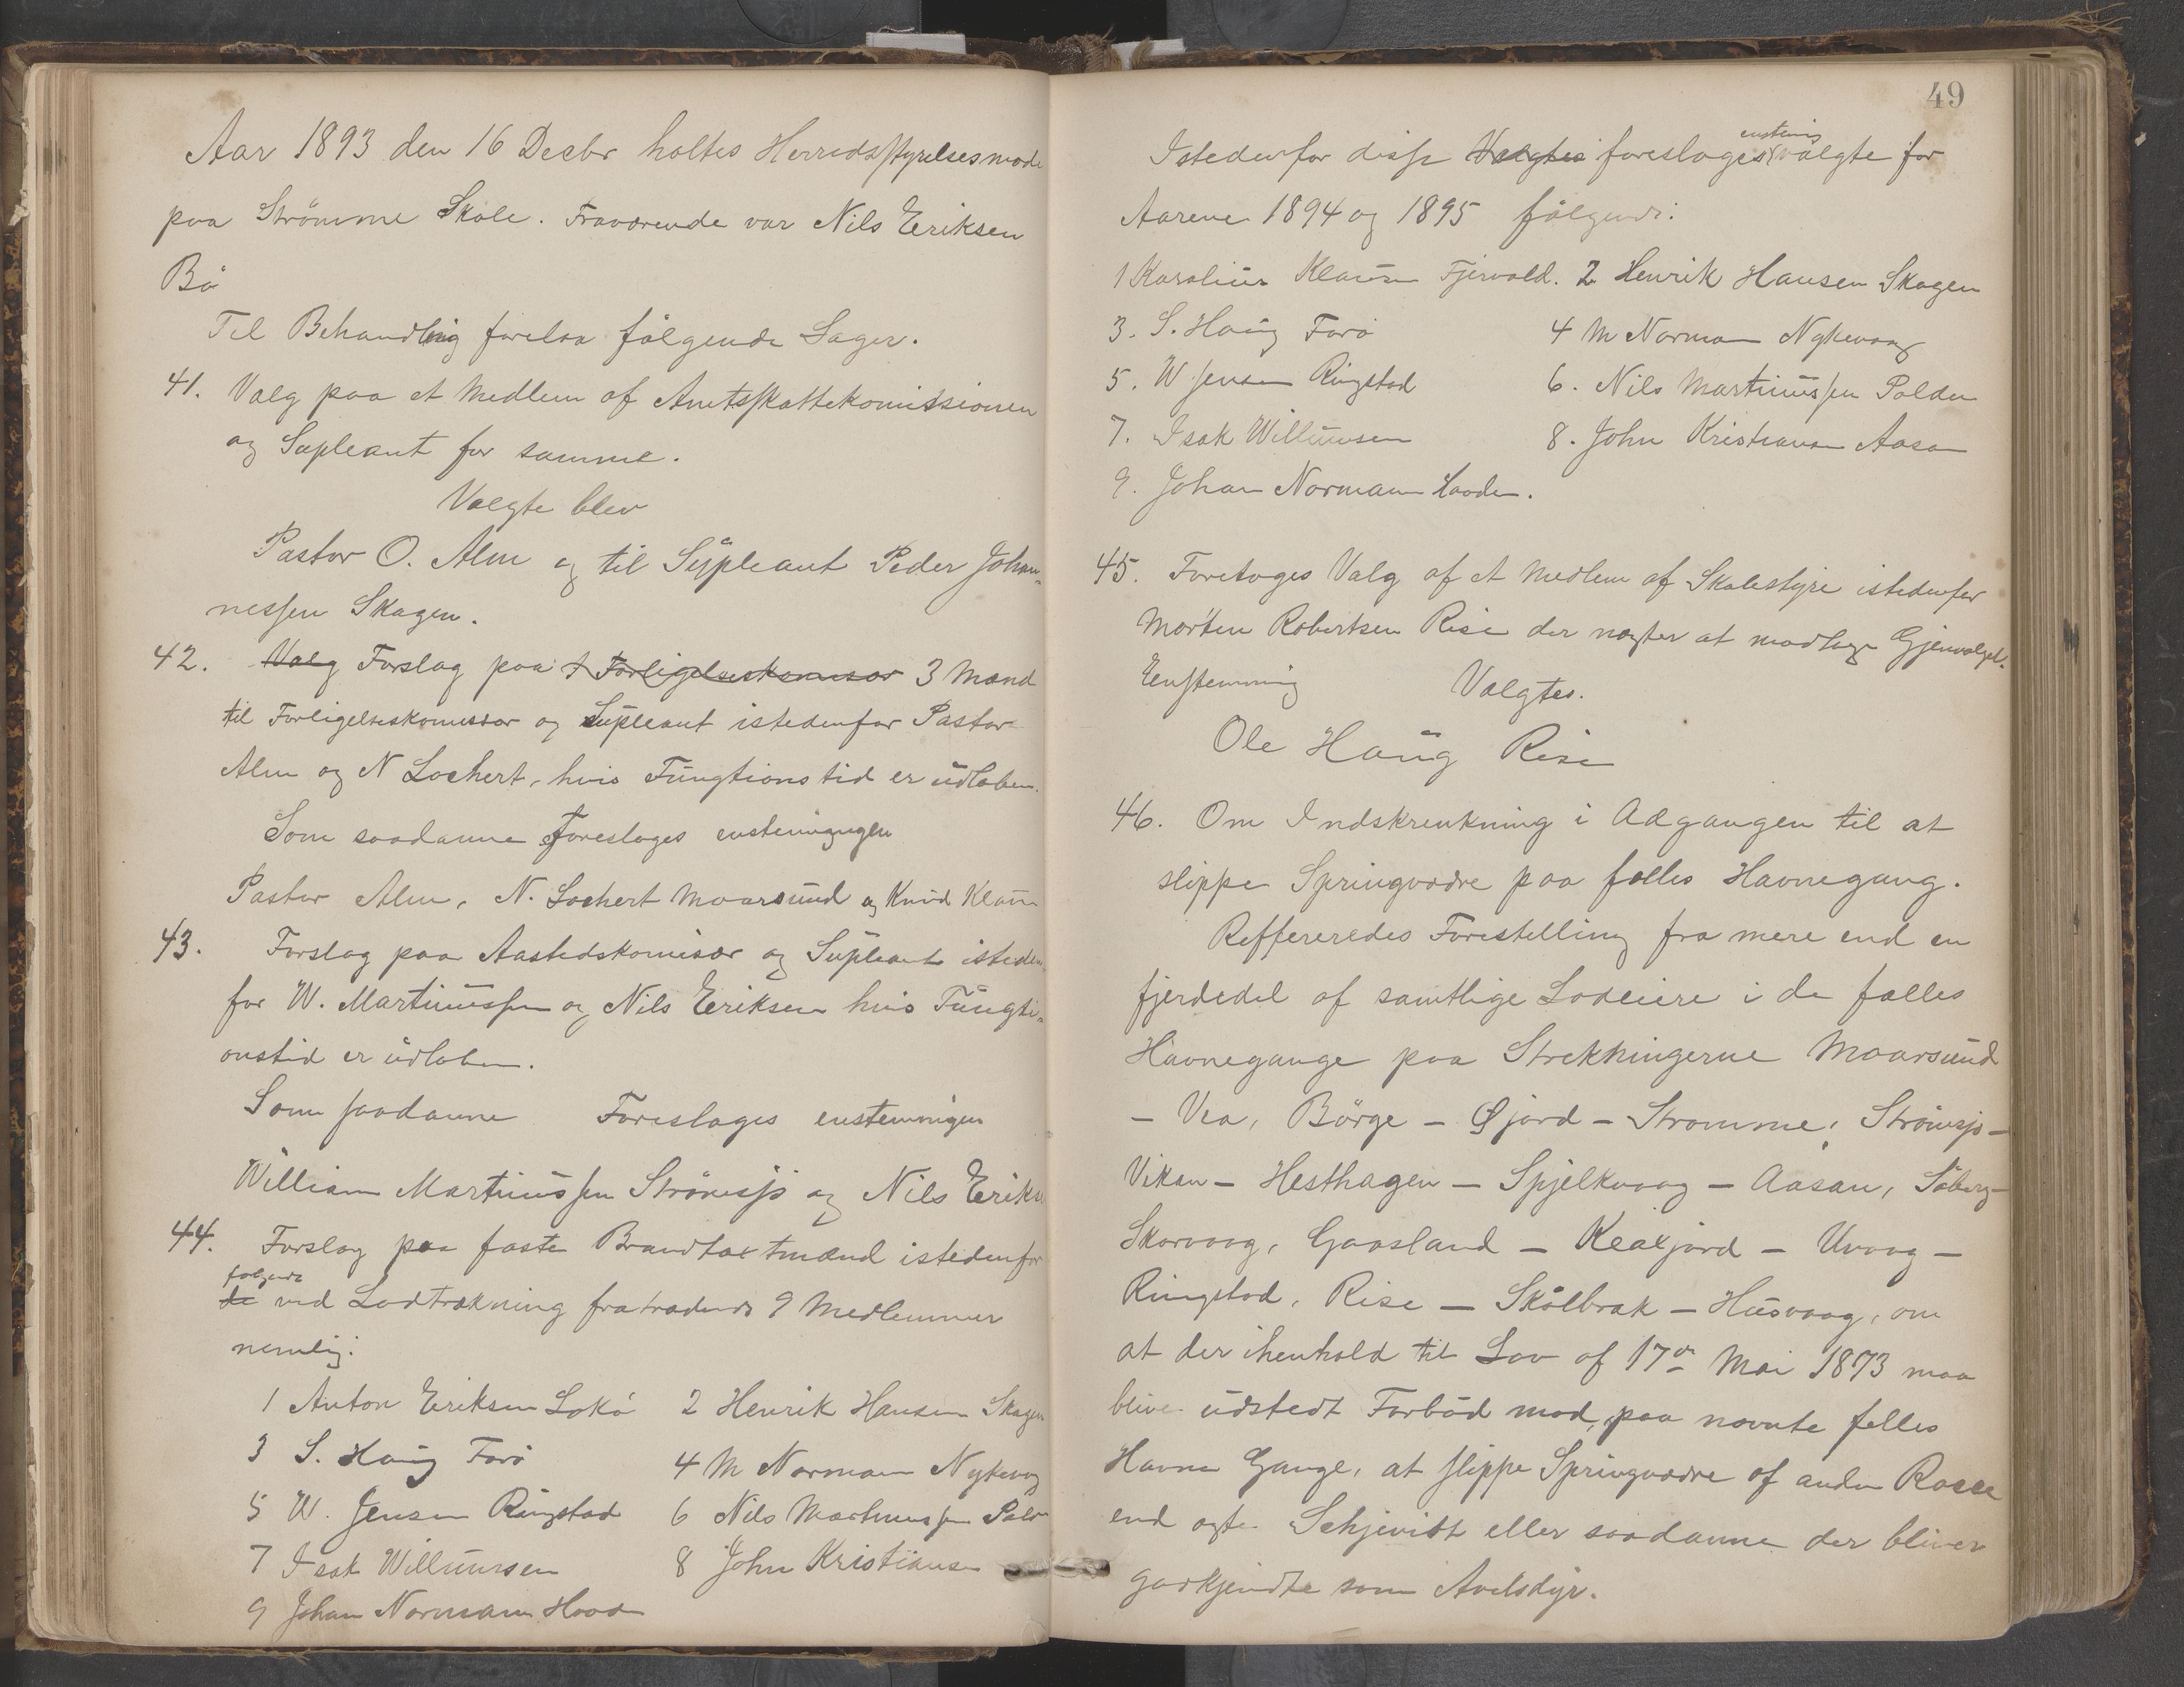 Aar 1893 den 16 Decbr holtes Herredsstyrelsesmøde
paa Strømme Skole. Fraværende var Nils Eriksen
Bö
Til Behandling forelaa fölgende Sager.
41. Valg paa et Medlem af Amtsskattekomissionen
og Supleant for samme.
Valgte blev
Pastor O. Alm og til Supleant Peder Johan-
nessen Skagen.
42. Valg Forslag paa 1 Forligelseskomisær 3 Mænd
til Forligelseskomissær og Supleant istedenfor Pastor
Alm og N Lochert, hvis Fungtionstid er udløben.
Som saadanne foreslages
Pastor Alm, N. Lochert Maarsund og Knud
43. Forslag paa Aastedskomisær og Supleant isteden-
for W. Martinussen og Nils Eriksen hvis Fungti-
onstid er udløben.
Som saadanne Foreslages enstemmigen
William Martinussen Strömsjö og Nils Eriks
44. Forslag paa faste Brandtaxtmænd istedenfor
følgende
de ved Lodtrækning fratrædende 9 Medlemmer
nemlig:
1 Anton Eriksen Lokö 2 Henrik Hansen Skagen
3 S. Haug Forö 4 M Norman Nykvaag
5 W. Jensen Ringstad 6 Nils Martinussen
7 Isak Willumsen 8 John Kristiansen
9 Johan Normann
49
enstemig
Istedenfor disse Valgtes foreslages valgte for
Aarene 1894 og 1895 fölgende:
1 Karolius Klausen Fjærvold. 2 Henrik Hansen Skagen
3. S. Haug Forö 4 M Norman Nykvaag
5. W Jensen Ringstad 6. Nils Martinussen Polden
7. Isak Willumsen 8. John Kristiansen Aasan
9. Johan Normann
45. Foretoges Valg af et Medlem af Skolestyre istedenfor
Morten Robertsen Rise der nægter at modtage Gjenvalget.
Eenstemmig Valgtes.
Ole Haug Rise
46. Om Indskrenkning i Adgangen til at
slippe Springvædre paa fælles Havnegang.
Reffereredes Forestelling fra mere end en
fjerdedel af samtlige Lodeiere i de fælles
Havnegange paa Strekningerne Maarsund
– Vea, Börge – Gjørd – Strømme, Strömsjö –
Vikan – Hesthagen – Spjelkvaag – Aasan, Söberg –
Skorvaag, Gaasland – – Uvaag –
Ringstad, Rise – Skålbrak – Husvaag, om
at der ihenhold til Lov af 17de Mai 1873 maa
blive udstedt Forbud mod, paa nævnte felles
Havne Gange, at slippe Springvædre af anden Race
end ægte Schjeviðt eller saadanne der bliver
godkjendte som Avelsdyr.